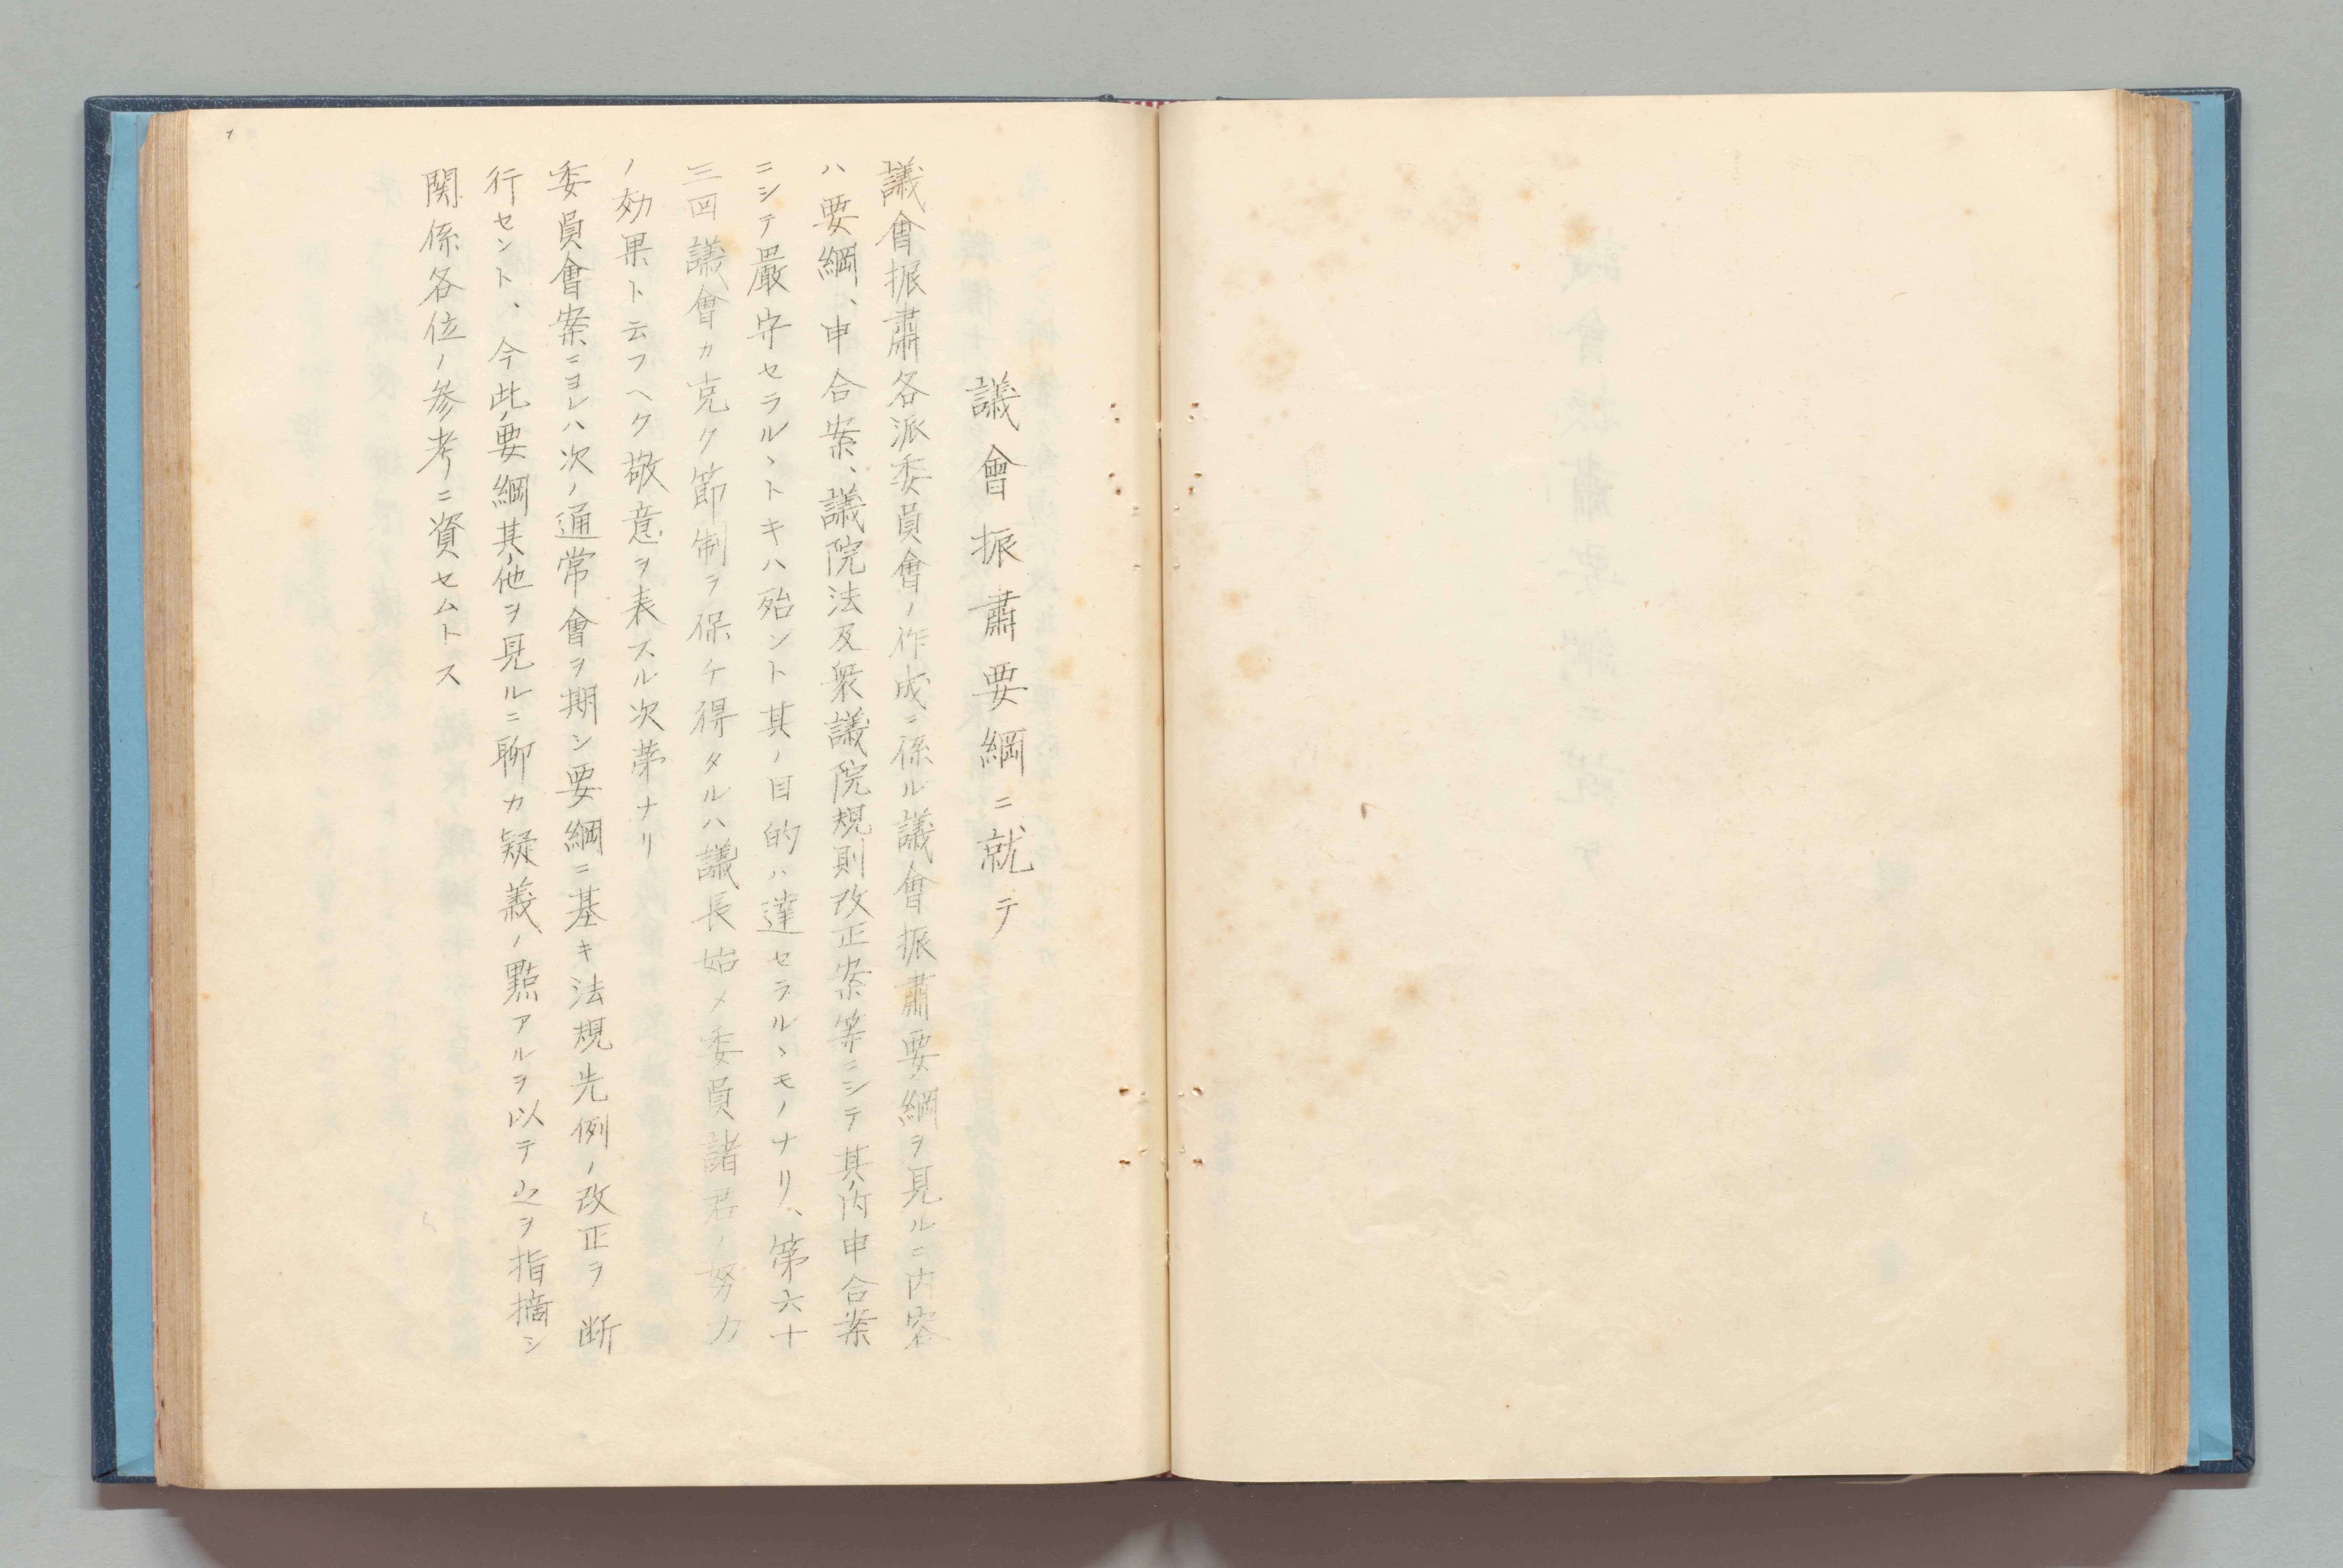 議會振肅要綱ニ就テ
議會振肅各派委員會ノ作成ニ係ル議會振肅要綱ヲ見ルニ内容
ハ要綱、申合案、議院法及衆議院規則改正案等ニシテ其ノ内申合案
ニシテ嚴守セラルヽトキハ殆ント其ノ目的ハ達セラルヽモノナリ、第六十
三回議會カ克ク節制ヲ保チ得タルハ議長始メ委員諸君ノ努力
ノ効果ト云フヘク敬意ヲ表スル次第ナリ
委員會案ニヨレハ次ノ通常會ヲ期シ要綱ニ基キ法規先例ノ改正ヲ断
行セント、今此ノ要綱其ノ他ヲ見ルニ聊カ疑義ノ點アルヲ以テ之ヲ指摘シ
関係各位ノ参考ニ資セムトス
1